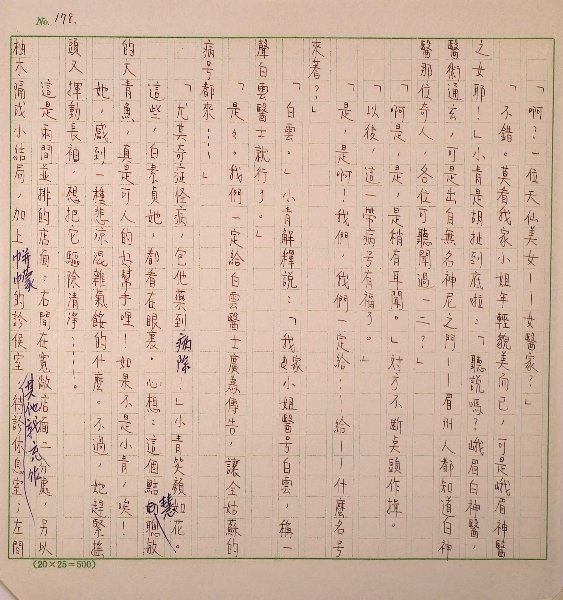 No. 178.
「啊?一位天仙美女——女醫家?」
不錯。莫看我家小姐年輕貌美而已,可是峨眉神醫
之女耶!」小青是胡扯到底啦:「聽說嗎?峨眉白神醫,
醫術通玄,可是出自無名神尼之門——眉州人都知道白神
醫那位奇人,各位可聽聞過一二?」
「啊是,是,是稍有耳聞。」對方不斷點頭作揖。
「以後,這一帶病号有福了。」
「是,是啊!我們,我們一定給⋯⋯給——什麼名号
來着?」
「白雲。」小青解釋說:「我家小姐醫号白雲,稱一
聲白雲醫士就行了。」
「是々。我們一定給白雲醫士廣為傳告,讓全姑蘇的
病号都來⋯⋯」
「尤其奇症怪病,包他藥到病除⋯」小青笑顏如花。
這些,白素貞她,都看在眼裏。心想:這個點慧聰敏
的大青魚,真是可人的好幫手哩!如果不是小青,唉!
她,感到一種悲涼混雜氣餒的什麼。不過,她趕緊搖
頭又揮動長袖,想把它驅除清淨⋯⋯。
這是兩間並排的店面:右間在寬敞店面二分處,另以
柚木隔成小結局,加上帡幪的診候室
其他就充作
待診休息室;左間
(20×25=500)